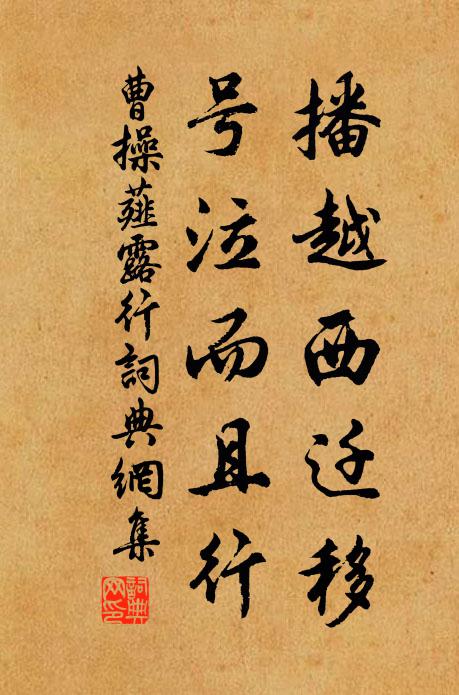 播越西迁移
号泣而且行
曹操薤露行詞典網集
詞典网印